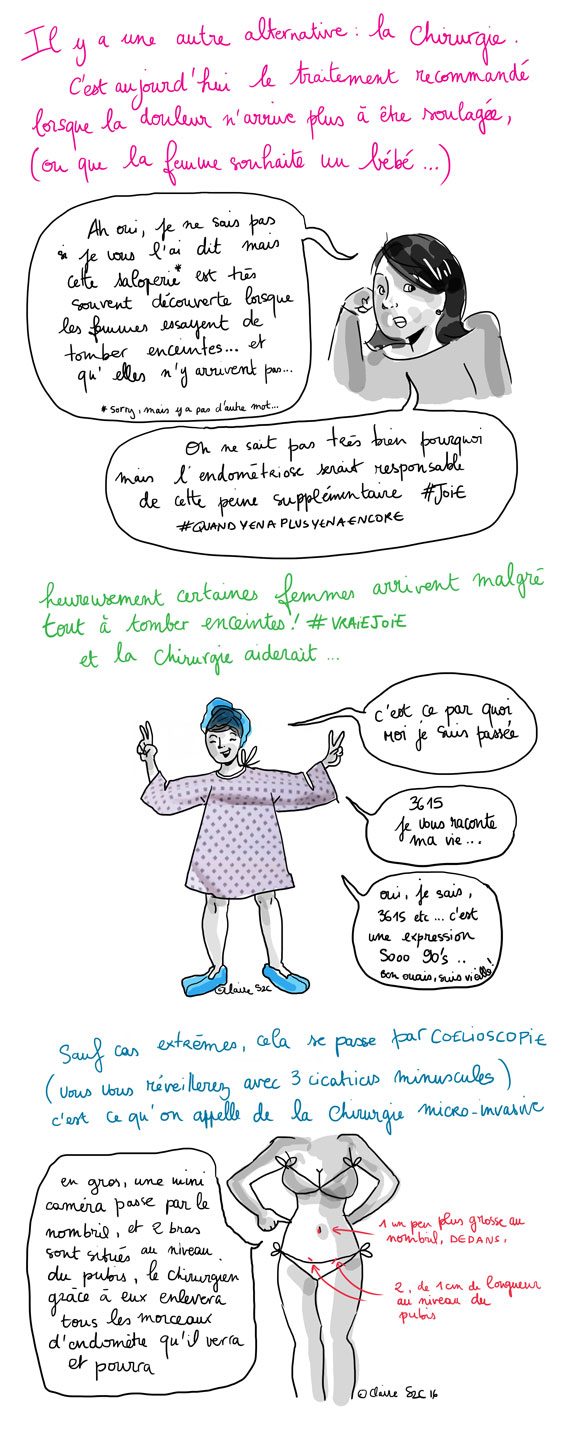 Il y a une autre alternative : la chirurgie.
C'est aujourd'hui le traitement recommandé
lorsque la douleur n'arrive plus à être soulagée,
(ou que la femme souhaite un bébé ...)
Ah oui, je ne sais pas
si je vous l'ai dit mais
cette saloperie* est très
souvent découverte lorsque
les femmes essayent de
tomber enceintes... et
qu'elles n'y arrivent pas...
* sorry, mais y a pas d'autre mot...
On ne sait pas très bien pourquoi
mais l'endométriose serait responsable
de cette peine supplémentaire #JOIE
#QUANDYENAPLUSYENAENCORE
heureusement certaines femmes arrivent malgré
tout à tomber enceintes! #VRAIEJOIE
et la chirurgie aiderait ...
c'est ce par quoi
moi je suis passée
3615
je vous raconte
ma vie...
oui, je sais,
3615 etc ... c'est
une expression
Sooo 90's ..
bon ouais, suis vieille!
©Claire S2C
Sauf cas extrêmes, cela se passe par COELIOSCOPIE
(vous vous réveillerez avec 3 cicatrices minuscules)
c'est ce qu'on appelle de la chirurgie micro-invasive
en gros, une mini
caméra passe par le
nombril, et 2 bras
sont situés au niveau
du pubis, le chirurgien
grâce à eux enlevera
tous les morceaux
d'endomètre qu'il verra
et pourra
1 un peu plus grosse au
nombril, DEDANS,
2, de 1cm de longueur
au niveau du
pubis
©Claire S2C 16